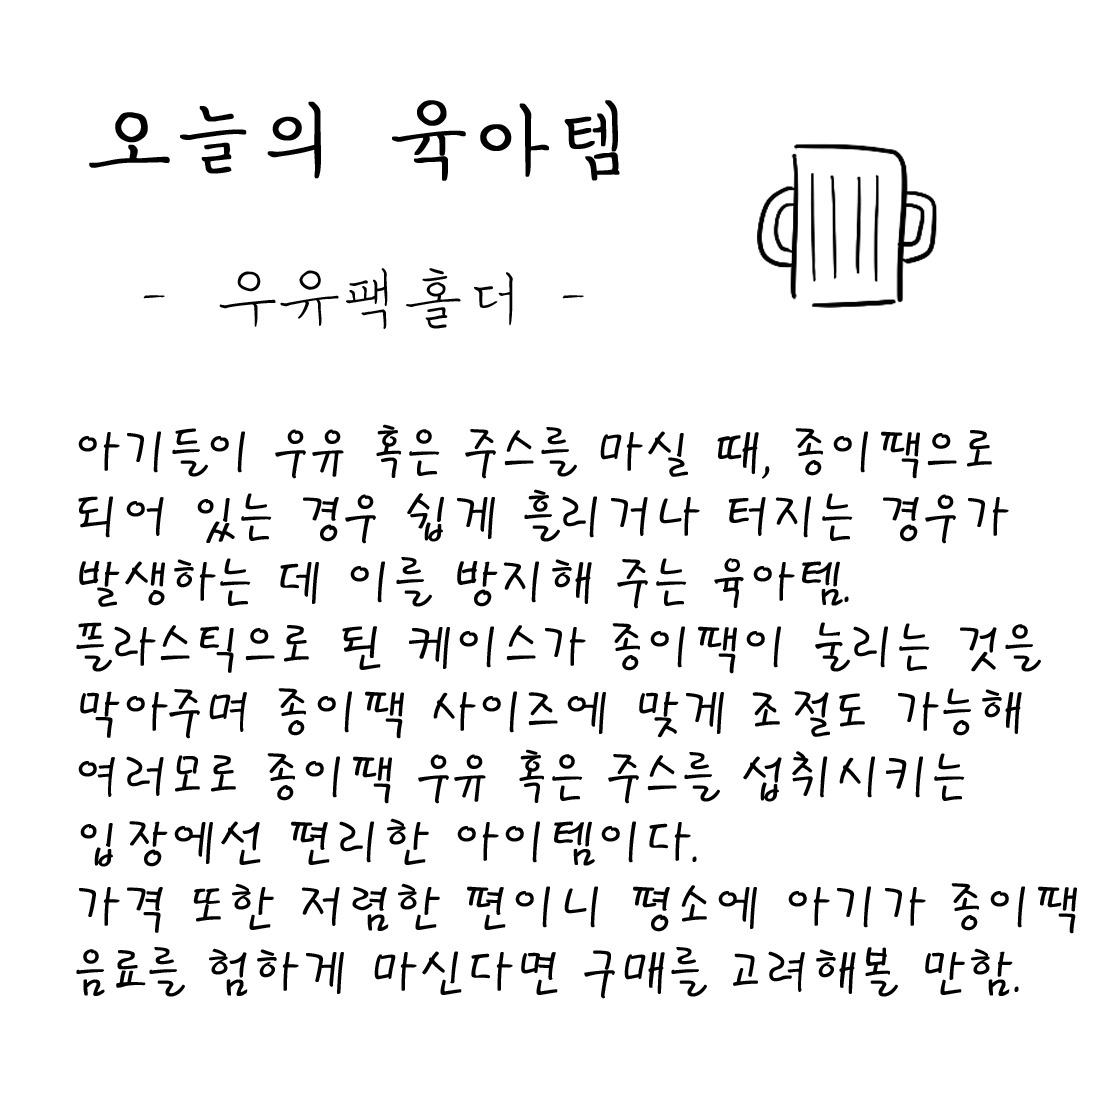 오늘의 육아템
- 우유팩홀더 -
아기들이 우유 혹은 주스를 마실 때, 종이팩으로
되어 있는 경우 쉽게 흘리거나 터지는 경우가
발생하는 데 이를 방지해 주는 육아템.
플라스틱으로 된 케이스가 종이팩이 눌리는 것을
막아주며 종이팩 사이즈에 맞게 조절도 가능해
여러모로 종이팩 우유 혹은 주스를 섭취시키는
입장에선 편리한 아이템이다.
가격 또한 저렴한 편이니 평소에 아기가 종이팩
음료를 험하게 마신다면 구매를 고려해볼 만함.